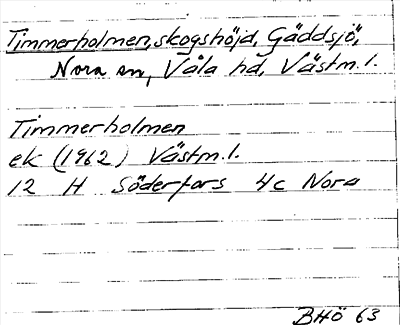 Timmerholmen, skogshöjd, Gäddsjö,
Nora sn, Våla hd, Västm.l.
Timmerholmen
ek (1962) Västm.l.
12 H Söderfors 4c Nora
BHÖ 63